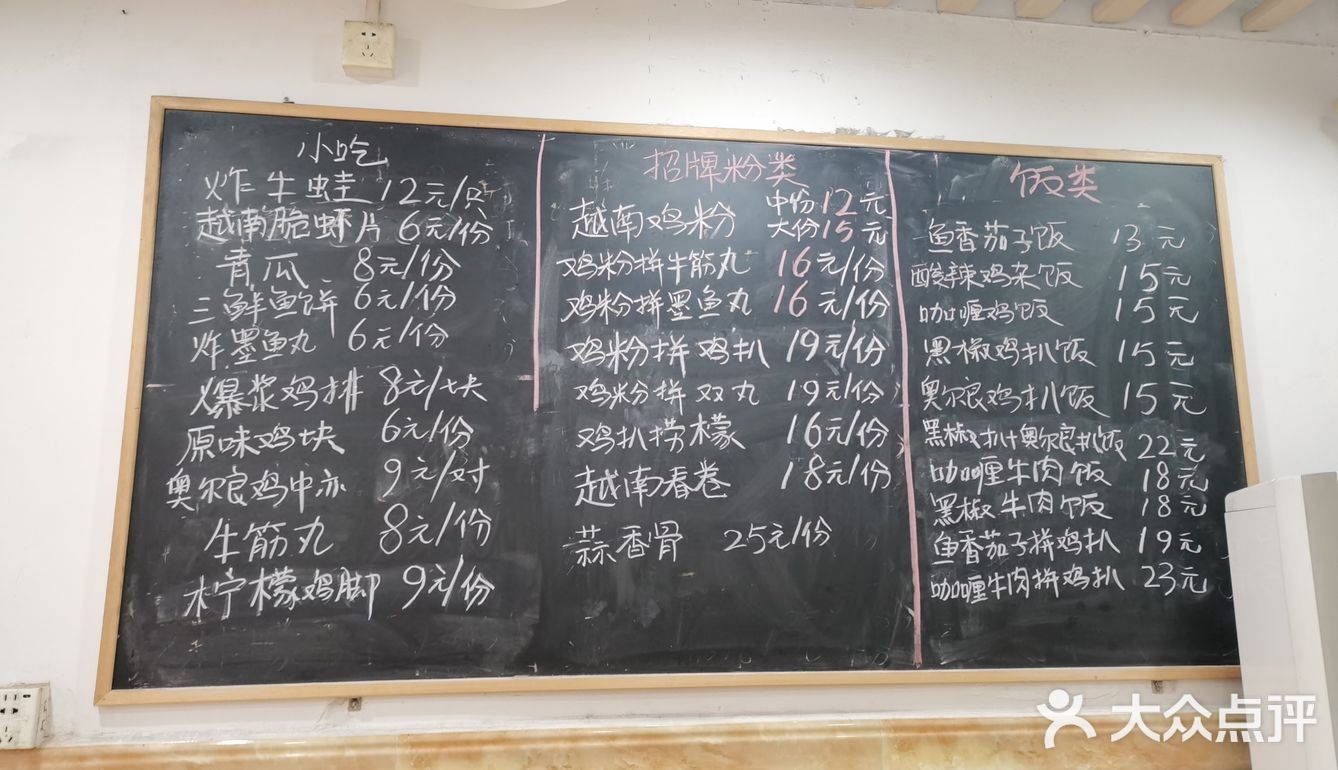 小吃
炸牛蛙 12元/只
越南脆虾片 6元/份
青瓜 8元/份
三鲜鱼饼 6元/份
炸墨鱼丸 6元/份
爆浆鸡排 8元/块
原味鸡块 6元/份
奥尔良鸡中亦 9元/对
牛筋丸 8元/份
柠檬鸡脚 9元/份
招牌粉类
越南鸡粉 中份12元
大份15元
鸡粉拼牛筋丸 16元/份
鸡粉拼墨鱼丸 16元/份
鸡粉拼鸡扒 19元/份
鸡粉拼双丸 19元/份
鸡扒捞檬 16元/份
越南春卷 18元/份
蒜香骨 25元/份
饭类
鱼香茄子饭 13元
酸辣鸡杂饭 15元
咖喱鸡饭 15元
黑椒鸡扒饭 15元
奥尔良鸡扒饭 15元
黑椒扒+奥尔良扒饭 22元
咖喱牛肉饭 18元
黑椒牛肉饭 18元
鱼香茄子拼鸡扒 19元
咖喱牛肉拼鸡扒 23元
大众点评